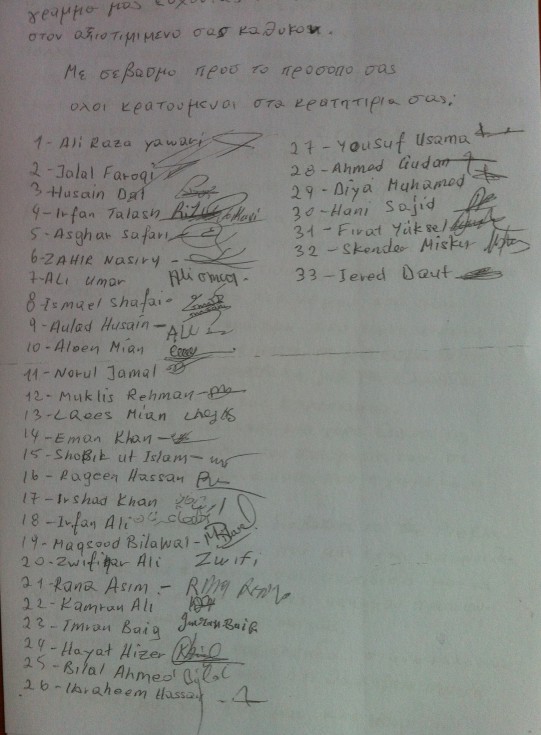 γραμμα μας
στον αξιοτιμιμενο σας καθικον.
Με σεβασμο προσ το προσοπο σας
ολοι κρατουμεναι στα κρατητιρια σας;
1- Ali Raza yawari
2- Jalal Faroqi
3- Husain Dat
4- Irfan Talash
5- Asghar Safari
6- ZAHIR Nasiry -
7- ALi umar Ali omar.
8- Ismael Shafai-
9- Aulad Husain- ALi
10- Aleen Mian
11- Norul Jamal
12- Muklis Rehman-
13- LAees Mian LAees
14- Eman Khan-
15- Shobik ut Islam-
16- Raqeen Hassan
17- Irshad Khan
18- Irfan Ali
19- Maqsood Bilawal-
20- Zwifiqar Ali Zwifi
21- Rana Asim.-
22- Kamran Ali
23- Imran Baig Imran Baig
24- Hayat Hizer
25- Bilal Ahmed Bilal
26- Ibraheem Hassan
27- Yousuf Usama
28- Ahmed Gudan
29- Diya Muhamed
30- Hani Sajid
31- Firat Yüksel
32- Skender Miskir
33- Jered Daut